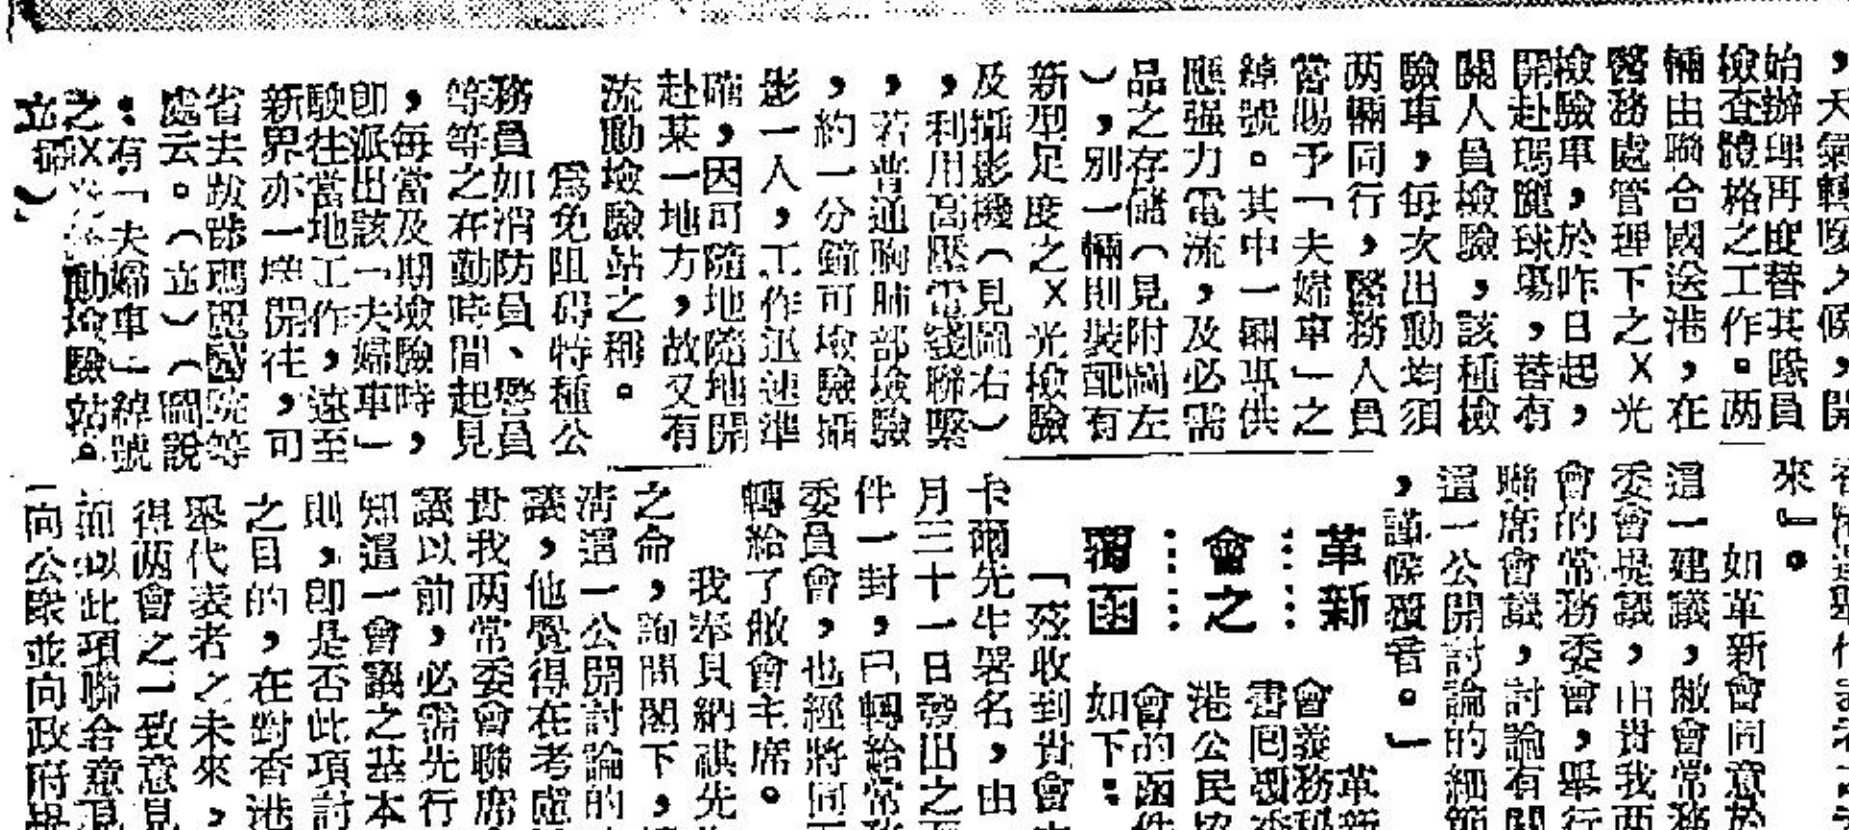 ，天氣轉暖之候，開
始辦理再度替其隊員
檢查體格之工作。两
輛由聯合國送港，在
醫務處管理下之X光
檢驗車，於昨日起，
開赴瑪麗球塲，替有
關人員檢驗，該種檢
驗車，每次出動均須
两輛同行，醫務人員
嘗賜予「夫婦車」之
綽號。其中一輛專供
應强力電流，及必需
品之存儲（見附圖左
），別一輛則裝配有
新型足度之X光檢驗
及攝影機（見圖右）
，利用高壓電綫聯繫
，若普通胸肺部檢驗
，約一分鐘可檢驗攝
影一人，工作迅速準
確，因可隨地隨地開
赴某一地方，故又有
流動檢驗站之稱。
爲免阻碍特種公
務員如消防員、警員
等等之在勤時間起見
，每當及期檢驗時，
卽派出該「夫婦車」
駛往當地工作，遠至
新界亦一樣開往，可
省去跋踄瑪麗醫院等
處云。（立）（圖說
：有「夫婦車」綽號
之X光流動檢驗站。
立攝）
來』。
如革新會同意於
這一建議，敝會常務
委會提議，由貴我两
會的常務委會，舉行
聯席會議，討論有關
這一公開討論的細節
，謹候覆音。」
革新
會之
覆函
革新
會義務秘
書囘覆香
港公民協
會的函件
如下：
「茲收到貴會
卡爾先生署名，由
月三十一日發出之
件一封，已轉給常
委員會，也經將同
轉給了敝會主席。
我奉貝納祺先
之命，詢問閣下，
淸這一公開討論的
議，他覺得在考慮
貴我两常委會聯席
議以前，必需先行
知這一會議之基本
則，卽是否此項討
之目的，在對香港
舉代表者之未來，
得两會之一致意見
而以此項聯合意見
向公衆並向政府